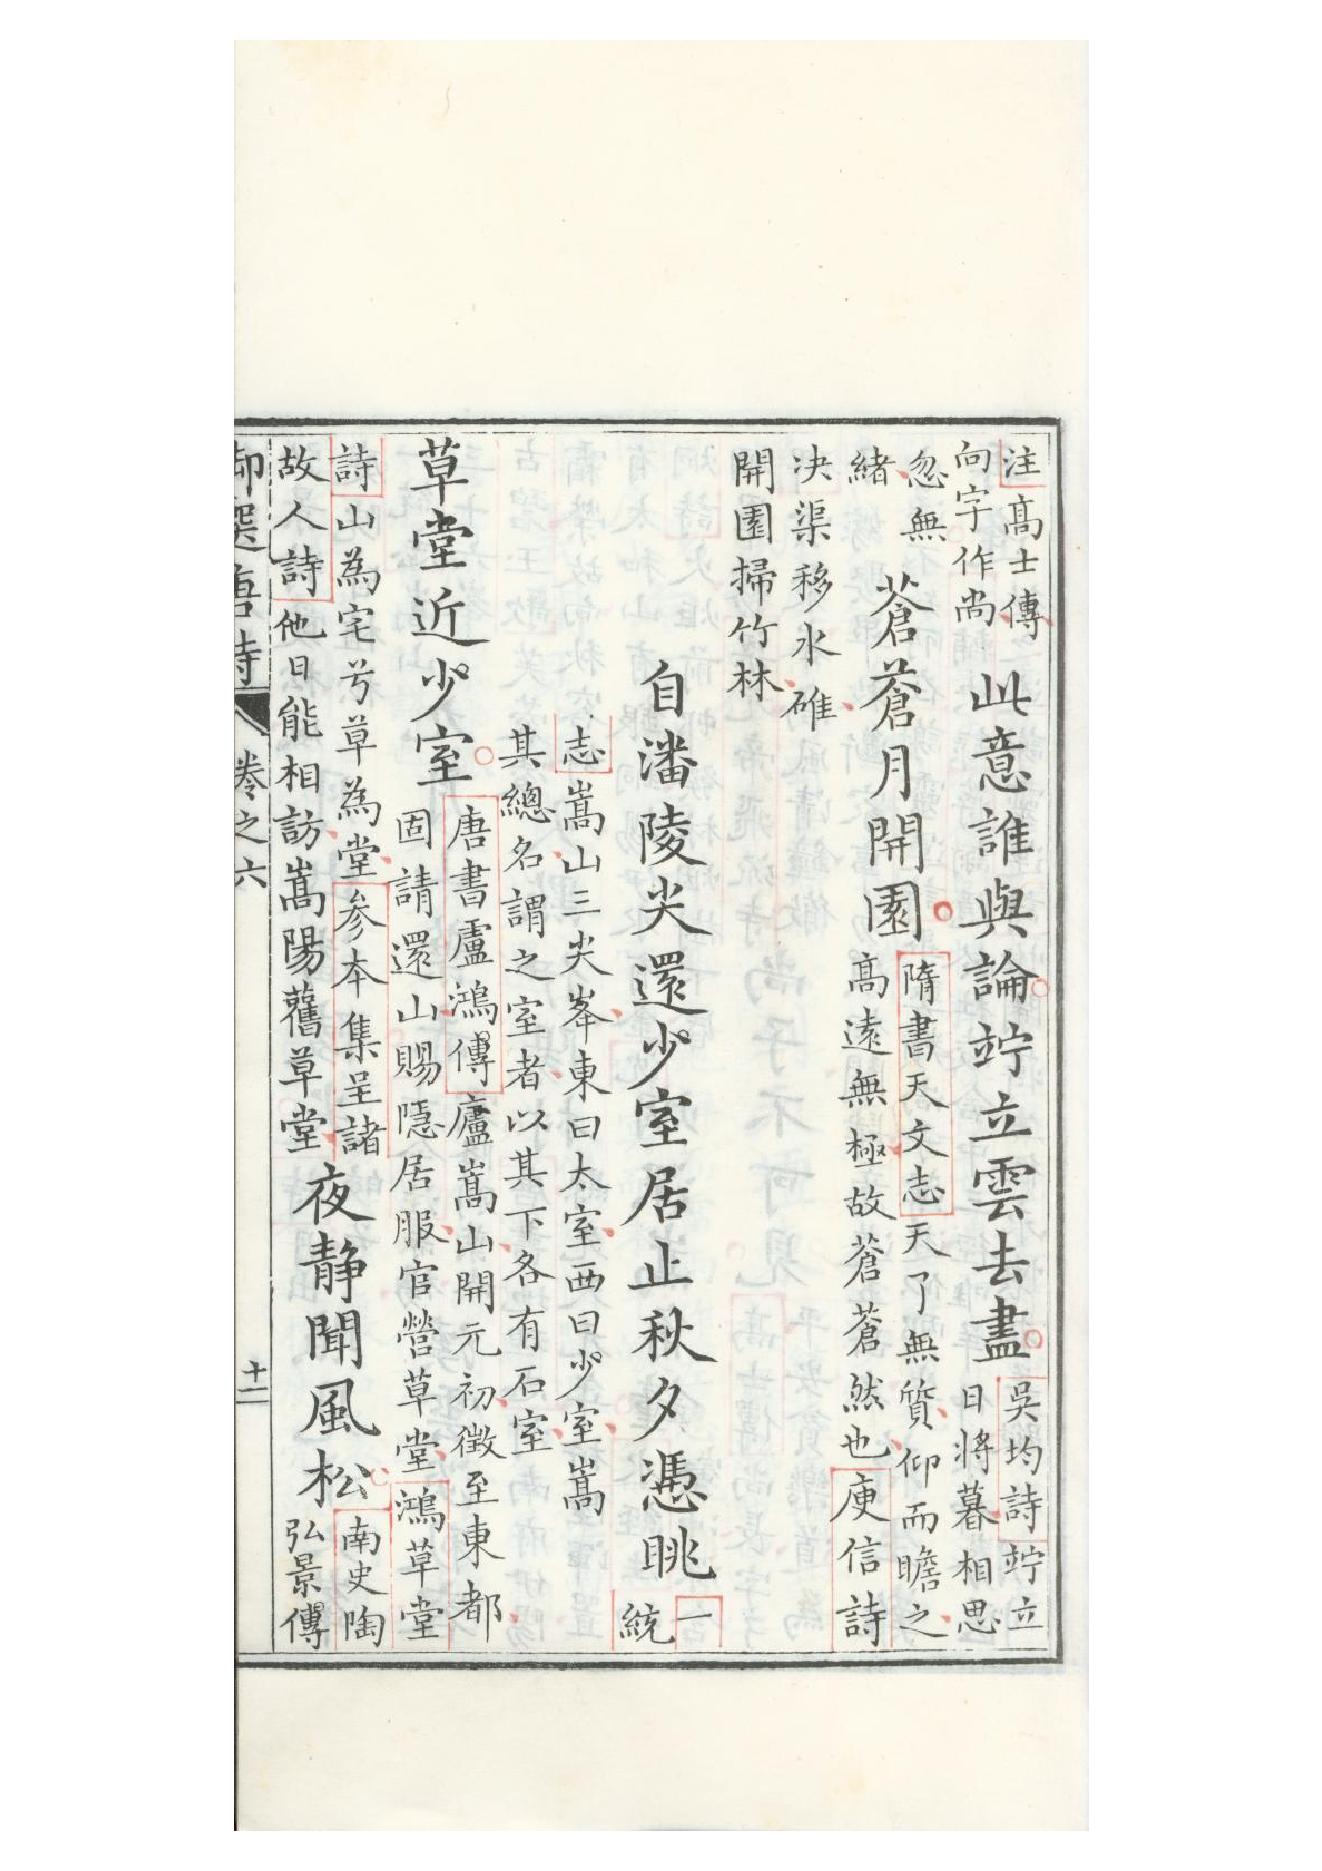 注高士傳
向字作尚
此意誰與論竚立雲去盡
吳均詩竚立
日將暮相思
忽無
緒
蒼蒼月開園
隋書天文志天了無質仰而瞻之
高遠無極故蒼蒼然也庾信詩
决渠移水碓
開園掃竹林
自潘陵尖還少室居止秋夕憑眺
一
統
志嵩山三尖峯東曰太室西曰少室嵩
其總名謂之室者以其下各有石室
草堂近少室
唐書盧鴻傳廬嵩山開元初徵至東都
固請還山賜隱居服官營草堂鴻草堂
詩山為宅兮草為堂參本集呈諸
故人詩他日能相訪嵩陽舊草堂
夜静聞風松
南史陶
弘景傳
御選唐詩 卷之六 十二